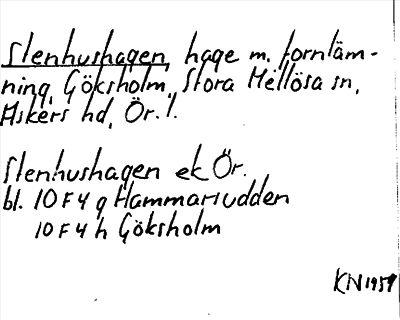 Stenhushagen, hage m. fornläm-
ning, Göksholm, Stora Mellösa sn,
Askers hd, Ör. l.
Stenhushagen ek Ör.
bl. 10 F 4 g Hammarudden
10 F 4 h Göksholm
KN 1959